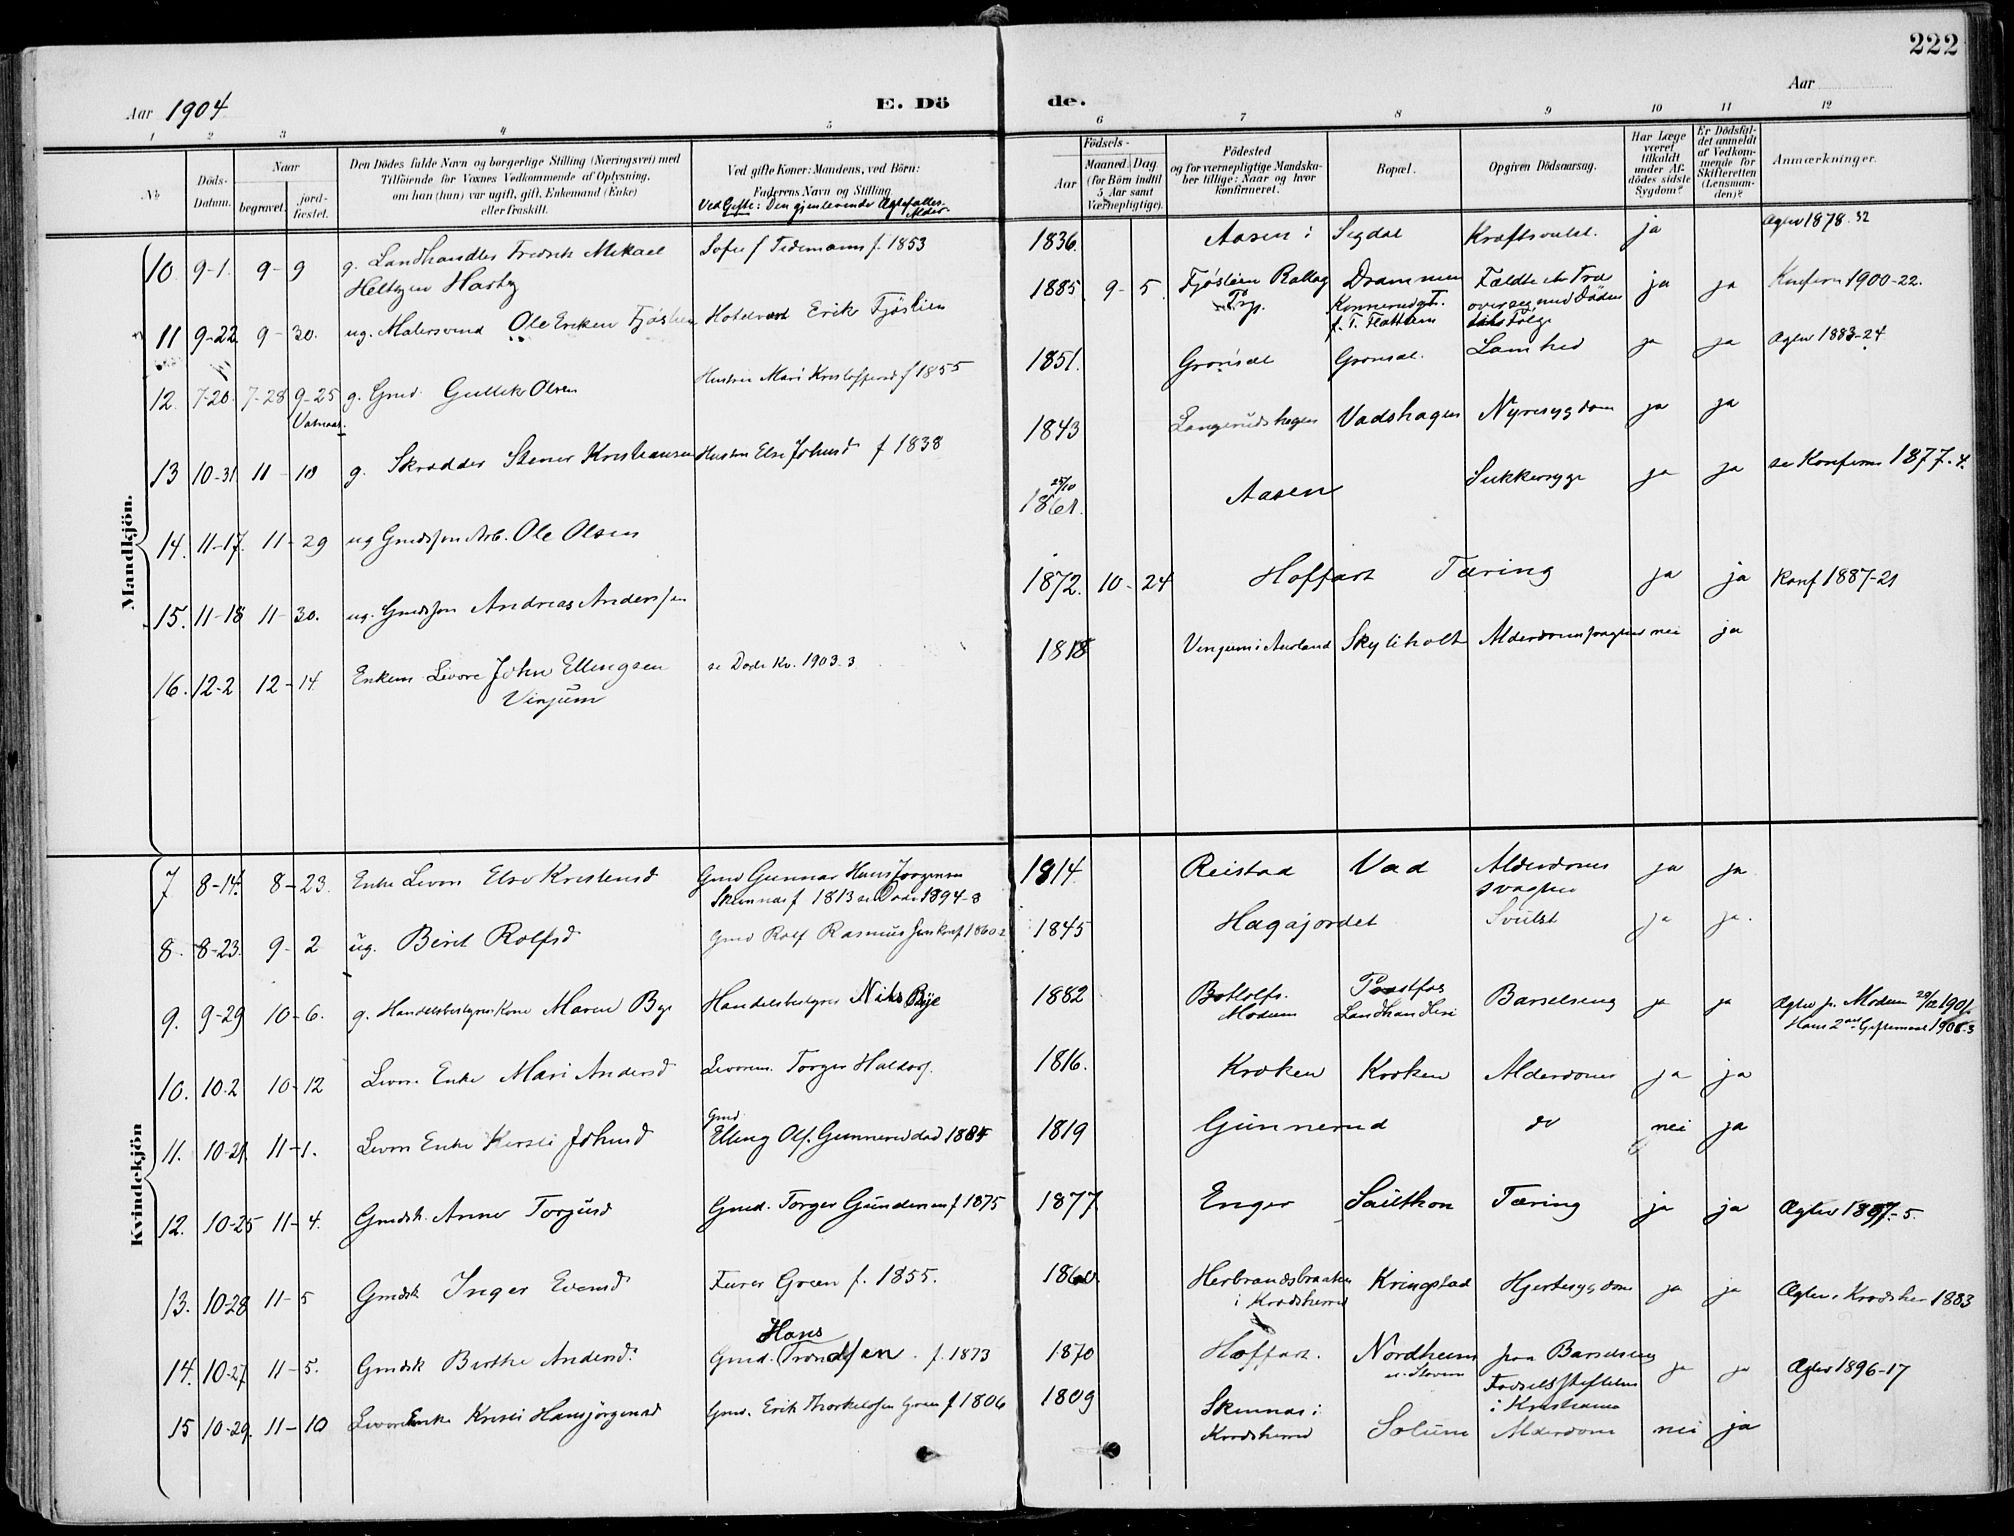 222
Aar 1904
E. Dö
de.
Aar
1 2 3 4 5 6 7 8 9 10 11 12
No
Döds-Datum.
Naar
begravet.
jord-fæstet.
Den Dödes fulde Navn og borgerlige Stilling (Næringsvei) med
Tilföiende for Voxnes Vedkommende af Oplysning,
om han (hun) var ugift, gift, Enkemand (Enke)
eller fraskilt.
Ved gifte Koner: Mandens, ved Börn:
Faderens Navn og Stilling.
Ved Gifte: Den gjenlevende Ægtefælles Alder.
Födsels-
Aar
Maaned. Dag.
(for Börn indtil
5 Aar samt
Værnepligtige).
Födested
og for værnepligtige Mandska-
ber tillige: Naar og hvor
konfirmeret.
Bopæl.
Opgiven Dödsaarsag.
Har Læge
været
tilkaldt
under Af-
dödes sidste
Sygdom?
Er Dödsfal-
det anmeldt
af Vedkom-
mende for
Skifteretten
(Lensman-
den)?
Anmærkninger.
Mandkjön.
10 9-1. 9-9 g. Landhandler Fredrik Mikael Sofie f Tidemann f. 1853 1836. Aasen i Sigdal Kræftsvulst. ja Ægtev 1878. 32
Heltzen Harby
11 9-22 9-30. ug. Malersvend Ole Eriksen Fjøslien Hotelvært Erik Fjøslien 1885. 9-5. Fjøslien Rollag Drammen Fældte et Træ ja ja Konfirm 1900-22.
over seg med Døden
til Følge
12. 7-20. 7-28 9-25 g. Gmd. Gullik Olsen Hustru Mari Kristoffersd f 1855 1851. Grønsdal Grønsdal. Lamhed ja ja Ægtev 1883-24
Vatnaas.
13 10-31 11-10 g. Skrædder Stener Kristiansen Hustru Else Johnsd f 1838 1843 Langerudshagen Vadshagen Nyresygdom ja ja
14. 11-17. 11-29 ug Gmdssøn Arb. Ole Olsen 25/10 1861. Aasen Sukkersyge ja ja se Konfirm 1877. 4.
15. 11-18 11-30. ug. Gmdssøn Andreas Anderssen 1872. 10-24 Hoffart Tæring ja ja Konf 1887-21
16. 12-2 12-14 Enkem. Livøre John Ellingsen se Døde Kv. 1903-3 1818 Vinjum i Aurland Skyliholt Alderdomssvaghed nei ja
Vinjum
Kvindekjön
7 8-14. 8-23. Enke Livøre Else Kristensd Gmd Gunnar Hans Jørgensen 1814. Reistad Vad Alderdoms ja ja
Skinnes f 1813 se Døde 1894-8 svaghed
8. 8-23. 9-2 ug. Birit Rolfsd Gmd Rolf Rasmussen konf 1860 1845 Hagajordet Svulst ja ja.
9. 9-29 10-6. g. Handelsbestyrers Kone Maren Bye Handelsbestyrer Nils Bye 1882 Modum Prestfos Barselseng ja ja Ægtev fr. Modum 29/12 1901.
Landhandleri Hans 2det Giftermaal
10. 10-2 10-12 Livør. Enke Mari Andersd Livørem. Torger Haldors. 1816. Kroken Kroken Alderdoms ja ja
11. 10-21. 11-1. Livøre Enke Kersti Johnsd Gmd Elling Ols. Gunnerud død 1884 1819 Gunnerud do nei ja
12. 10-25 11-4. Gmdsk. Anne Torgusd Gmd. Torger Gundersen f 1875 1877 Enger Tæring ja ja Ægtev 1897-5.
13. 10-28 11-5 Gmdsk Inger Evensd Green f. 1855. 1860. Herbrandsbraaten Kringstad Hjertesygdom ja ja Ægtev. Krødsher 1883
i Krødsherred
14. 10-27 11-5. Gmdsk Berthe Andersd. Gmd. Hans Trondsen. f. 1873 1870 Hoffart. Nordheim paa Barselseng ja ja Ægtev 1896-17
Fødselsstiftelsen
i Kristiania
15 10-29. 11-10 Livøre Enke Kristi Hansjørgensd Gmd. Erik Thorkelssen Green f 1806 1809 Skinnes i Solum Alderdom nei ja
Krødsherred